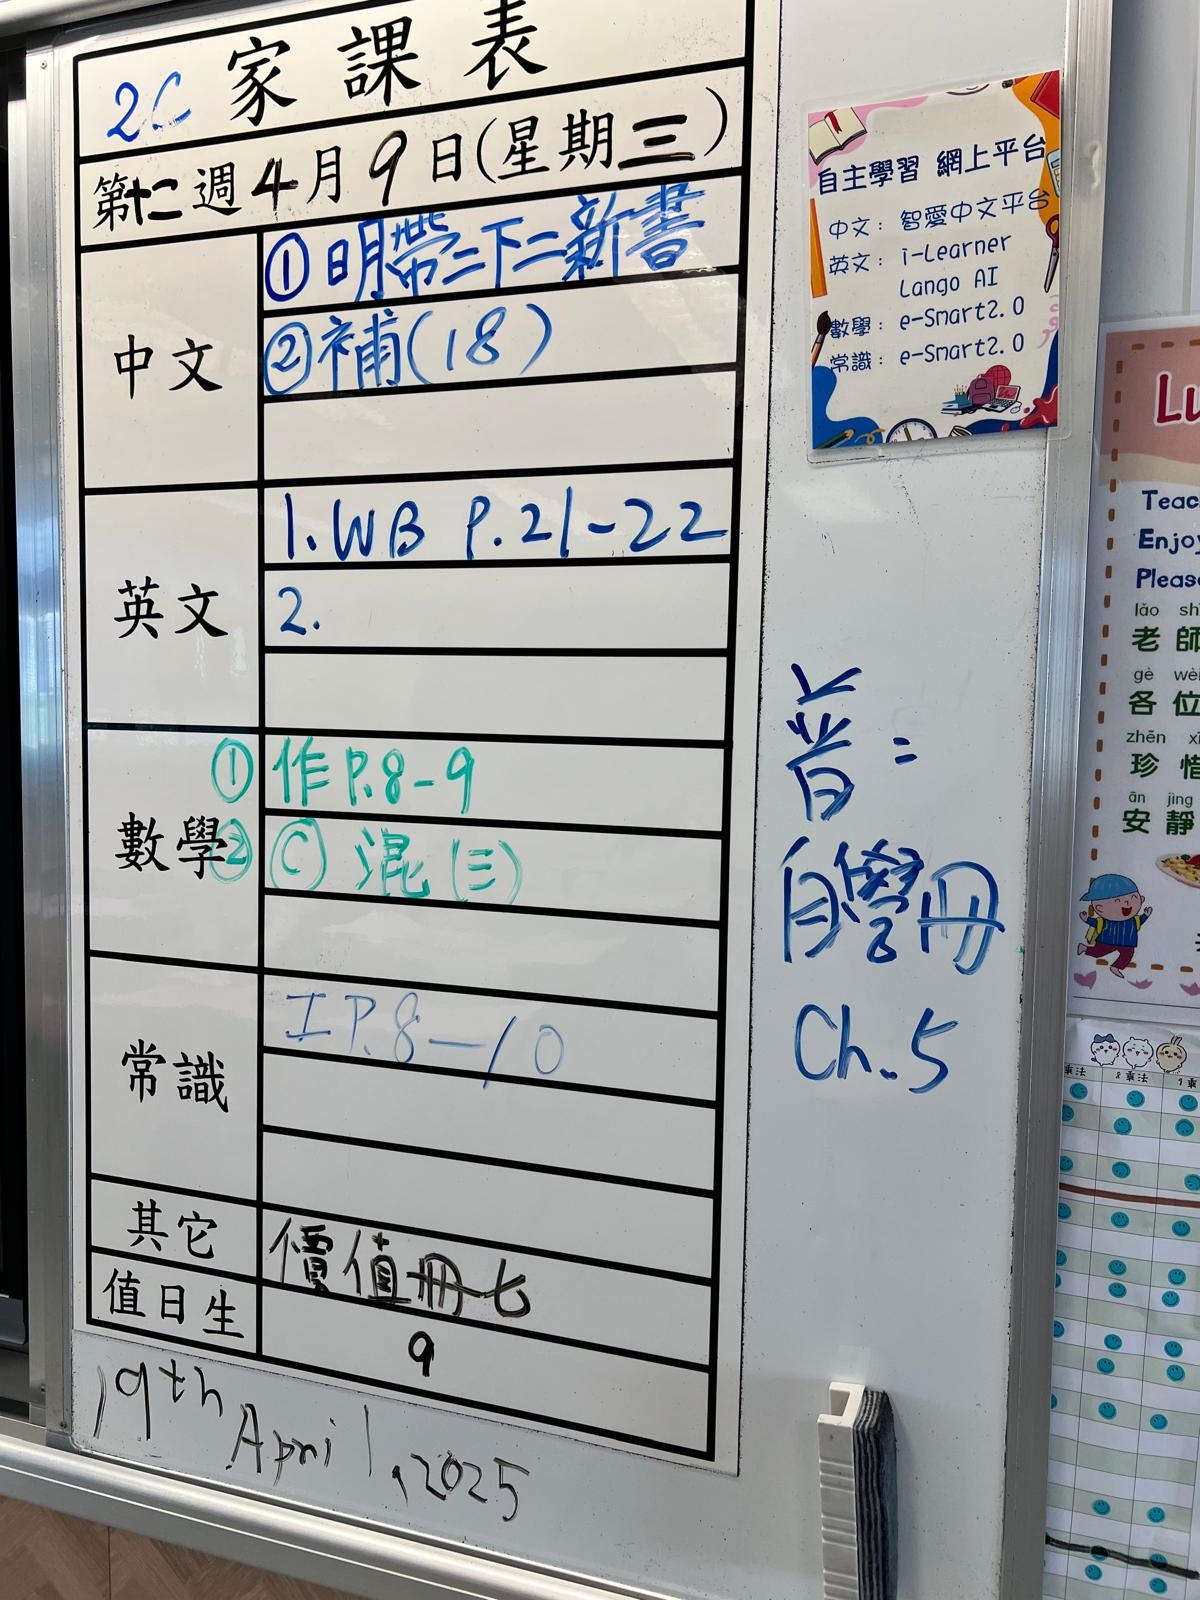 2C 家課表
第十二週4月9日(星期三)
中文
①明帶二下二新書
②補(18)
英文
1.WB P.21-22
2.
數學
① 作P.8-9
② Ⓒ 混(三)
常識
工P.8—10
其它
價值冊七
值日生
9
19th April, 2025
自主學習 網上平台
中文：智愛中文平台
英文：i-Learner
Lango AI
數學：e-Smart2.0
常識：e-Smart2.0
普：
自學冊
Ch.5
Lu
Teac
Enjoy
Please
lǎo sh
老師
gè wè
各位
zhēn x
珍惜
ān jìng
安靜
乘法
8乘法